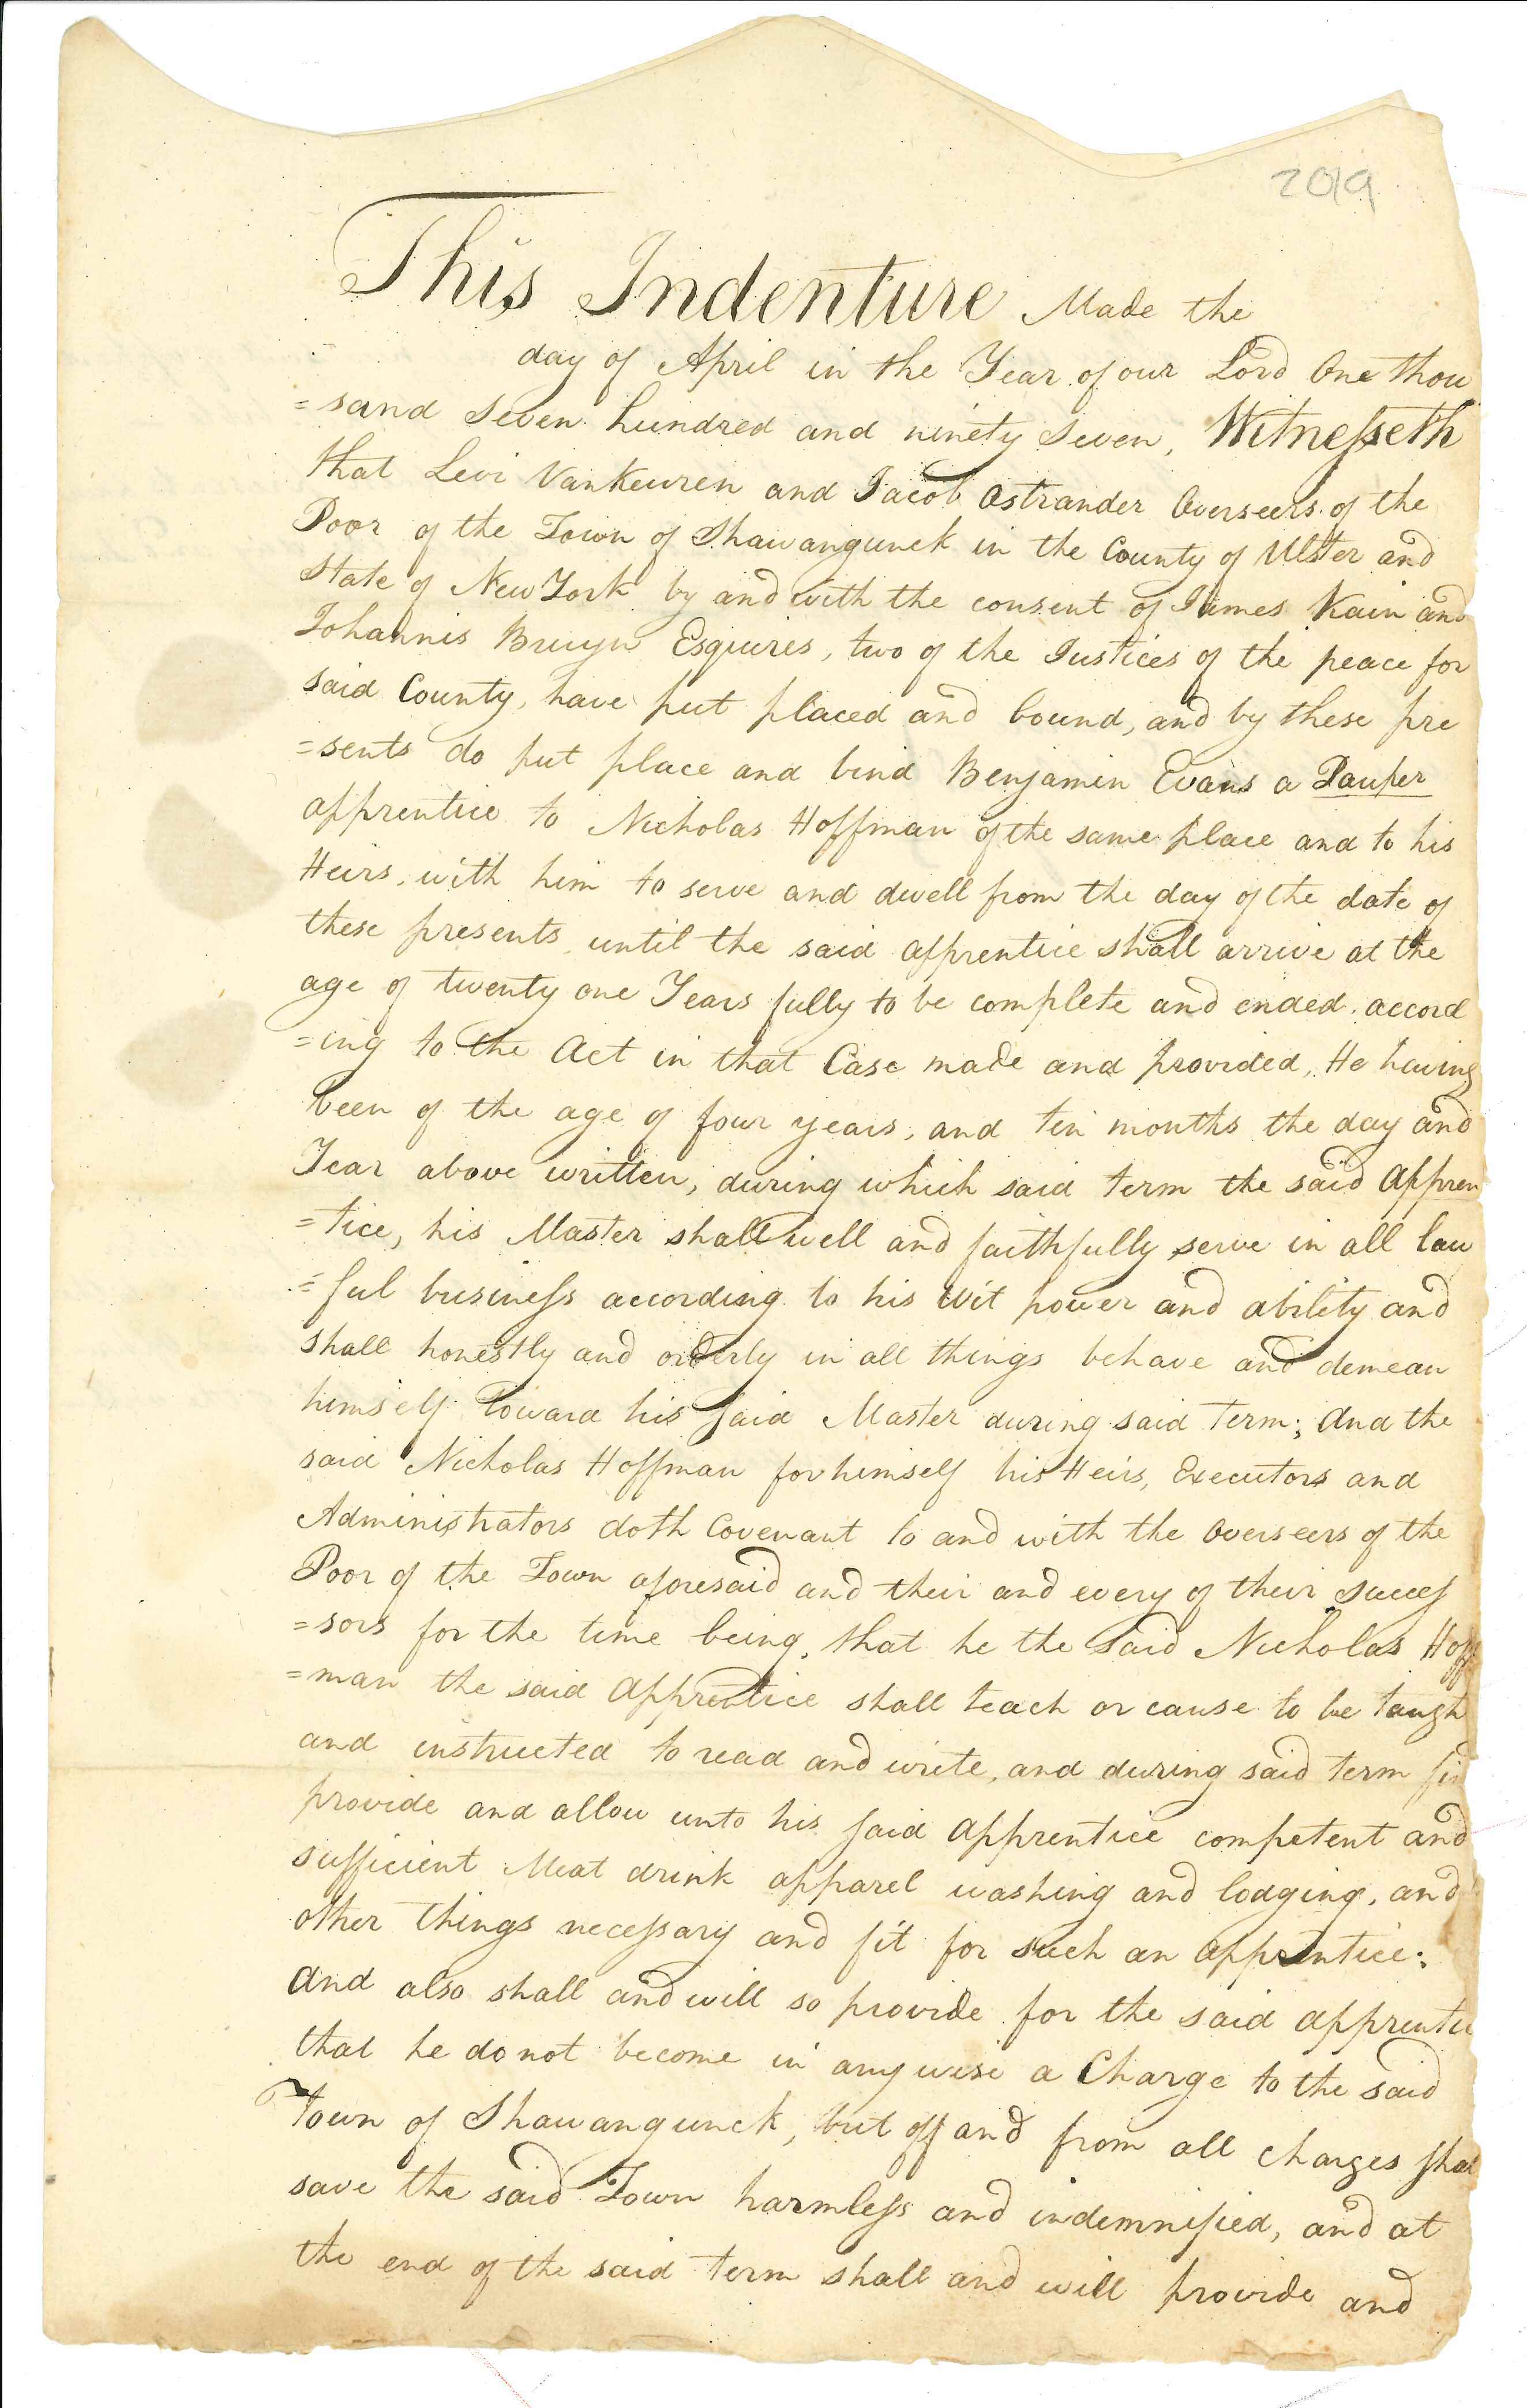 2019
This Indenture Made the
day of April in the Year of our Lord One thou
=sand Seven hundred and ninety Seven, Witnesseth
that Levi VanKeuren and Jacob Ostrander Overseers of the
Poor of the Town of Shawangunck in the County of Ulster and
State of New York by and with the consent of James Kain and
Johannis Bruyn Esquires, two of the Justices of the peace for
said County, have put placed and bound, and by these pre
=sents do put place and bind Benjamin Evans a Pauper
apprentice to Nicholas Hoffman of the same place and to his
Heirs, with him to serve and dwell from the day of the date of
these presents until the said apprentice shall arrive at the
age of twenty one Years fully to be complete and ended, accord
=ing to the Act in that Case made and provided, He having
been of the age of four years, and ten months the day and
Year above written, during which said term the said Appren
=tice, his Master shall well and faithfully serve in all law
=ful business according to his Wit power and ability and
shall honestly and orderly in all things behave and demean
himself toward his said Master during said term; And the
said Nicholas Hoffman for himself his Heirs, Executors and
Administrators doth Covenant to and with the Overseers of the
Poor of the Town aforesaid and their and every of their Succes
=sors for the time being, that he the said Nicholas Hoff
=man the said Apprentice shall teach or cause to be taugh
and instructed to read and write, and during said term fin
provide and allow unto his said Apprentice competent and
sufficient Meat drink apparel washing and lodging, and
other things necessary and fit for such an Apprentice;
And also shall and will so provide for the said apprentic
that he do not become in any wise a Charge to the said
Town of Shawangunck, but off and from all charges shal
save the said Town harmless and indemnified, and at
the end of the said term shall and will provide and